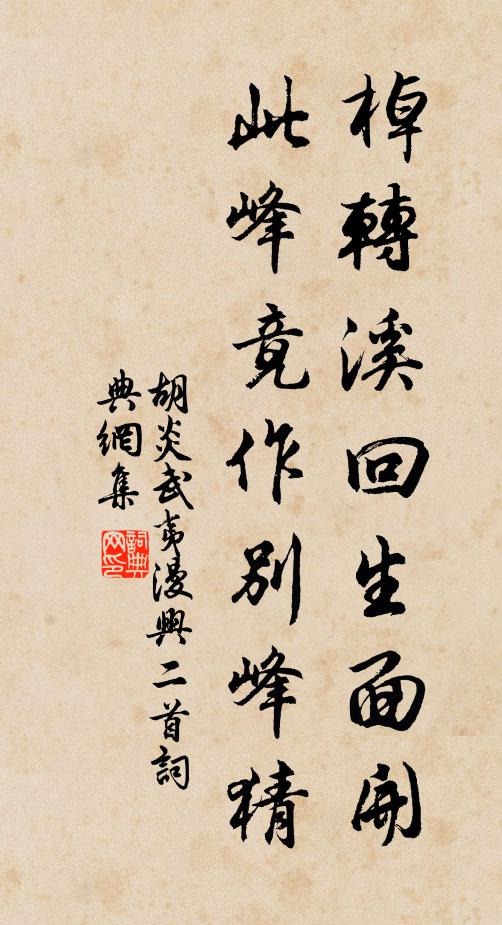 棹轉溪回生面開
此峰竟作別峰猜
胡炎武夷漫興二首詞
典網集
詞典
网印